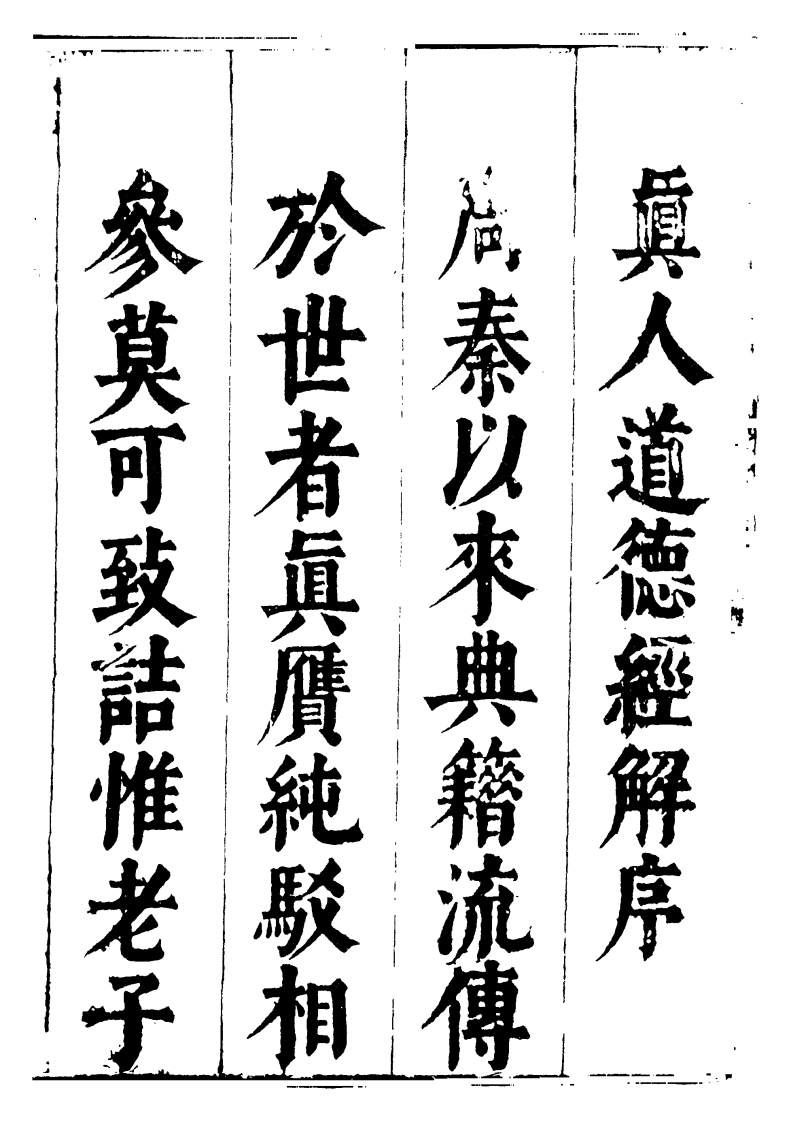 眞人道德經解序
周秦以來典籍流傳
於世者眞贋純駁相
參莫可致詰惟老子